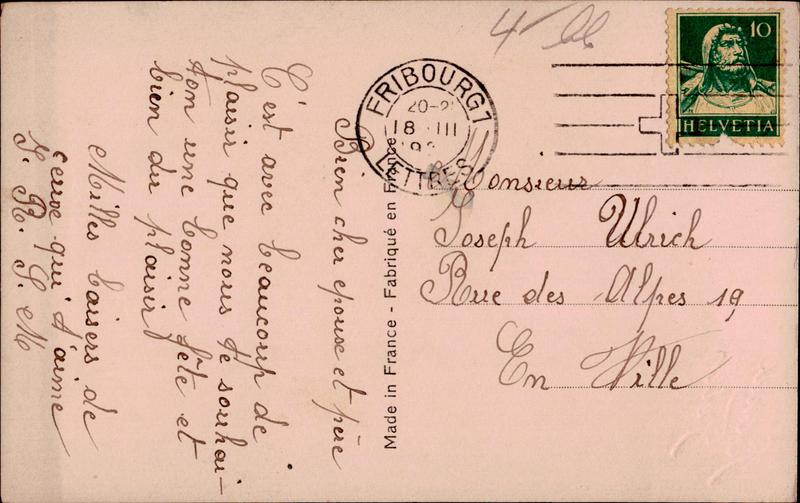 Bien cher epoux et père
C'est avec beaucoup de
plaisir que nous te souhai-
ton une bonne fête et
bien du plaisir
Milles baisers de
ceux qui t'aime
J. R. G. M
Made in France - Fabriqué en France
FRIBOURG 1
20-2
18 III
LETTRES
10
HELVETIA
Monsieur
Joseph Ulrich
Rue des Alpes 19
En Ville